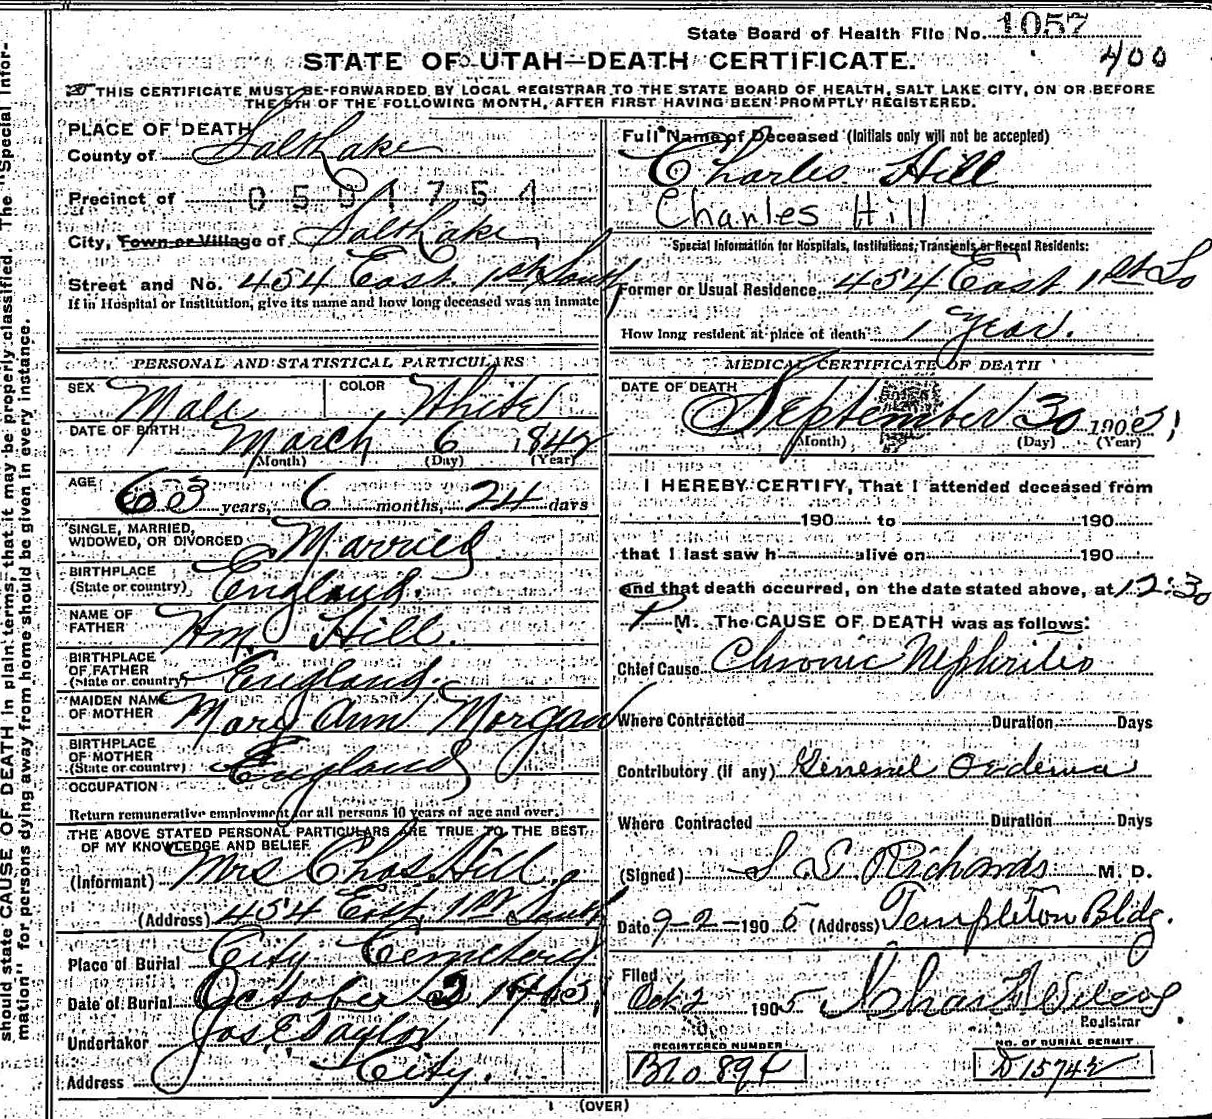 State Board of Health File No. 1057
400
STATE OF UTAH—DEATH CERTIFICATE.
THIS CERTIFICATE MUST BE FORWARDED BY LOCAL REGISTRAR TO THE STATE BOARD OF HEALTH, SALT LAKE CITY, ON OR BEFORE
THE 5TH OF THE FOLLOWING MONTH, AFTER FIRST HAVING BEEN PROMPTLY REGISTERED.
should state CAUSE OF DEATH in plain terms that it may be properly classified. The "Special Infor-
mation" for persons dying away from home should be given in every instance.
PLACE OF DEATH
County of Salt Lake
Precinct of 0501754
City, Town or Village of Salt Lake
Street and No. 454 East 1st South
If in Hospital or Institution, give its name and how long deceased was an inmate
PERSONAL AND STATISTICAL PARTICULARS
SEX Male COLOR White
DATE OF BIRTH March 6 1842
(Month) (Day) (Year)
AGE 63 years, 6 months, 24 days
SINGLE, MARRIED,
WIDOWED, OR DIVORCED Married
BIRTHPLACE
(State or country) England.
NAME OF
FATHER Wm. Hill.
BIRTHPLACE
OF FATHER
(State or country) England.
MAIDEN NAME
OF MOTHER Mary Ann Morgan
BIRTHPLACE
OF MOTHER
(State or country) England
OCCUPATION
Return remunerative employment for all persons 10 years of age and over.
THE ABOVE STATED PERSONAL PARTICULARS ARE TRUE TO THE BEST
OF MY KNOWLEDGE AND BELIEF
(Informant) Mrs Chas. Hill
(Address) 454 East 1st South
Place of Burial City Cemetery
Date of Burial October 2 1905
Undertaker Jos. E Taylor
Address City.
Full Name of Deceased (Initials only will not be accepted)
Charles Hill
Charles Hill
Special Information for Hospitals, Institutions, Transients or Recent Residents:
Former or Usual Residence 454 East 1st So
How long resident at place of death 1 Year.
MEDICAL CERTIFICATE OF DEATH
DATE OF DEATH
September 30 1905
(Month) (Day) (Year)
I HEREBY CERTIFY, That I attended deceased from
190 to 190
that I last saw h alive on 190
and that death occurred, on the date stated above, at 12:30
P M. The CAUSE OF DEATH was as follows:
Chief Cause Chronic Nephritis
Where Contracted Duration Days
Contributory (if any) General Oedema
Where Contracted Duration Days
(Signed) S. S. Richards M. D.
Date 9-2-1905 (Address) Templeton Bldg.
Filed
Oct 2 1905
Registrar
REGISTERED NUMBER
NO. OF BURIAL PERMIT
D 15742
(OVER)